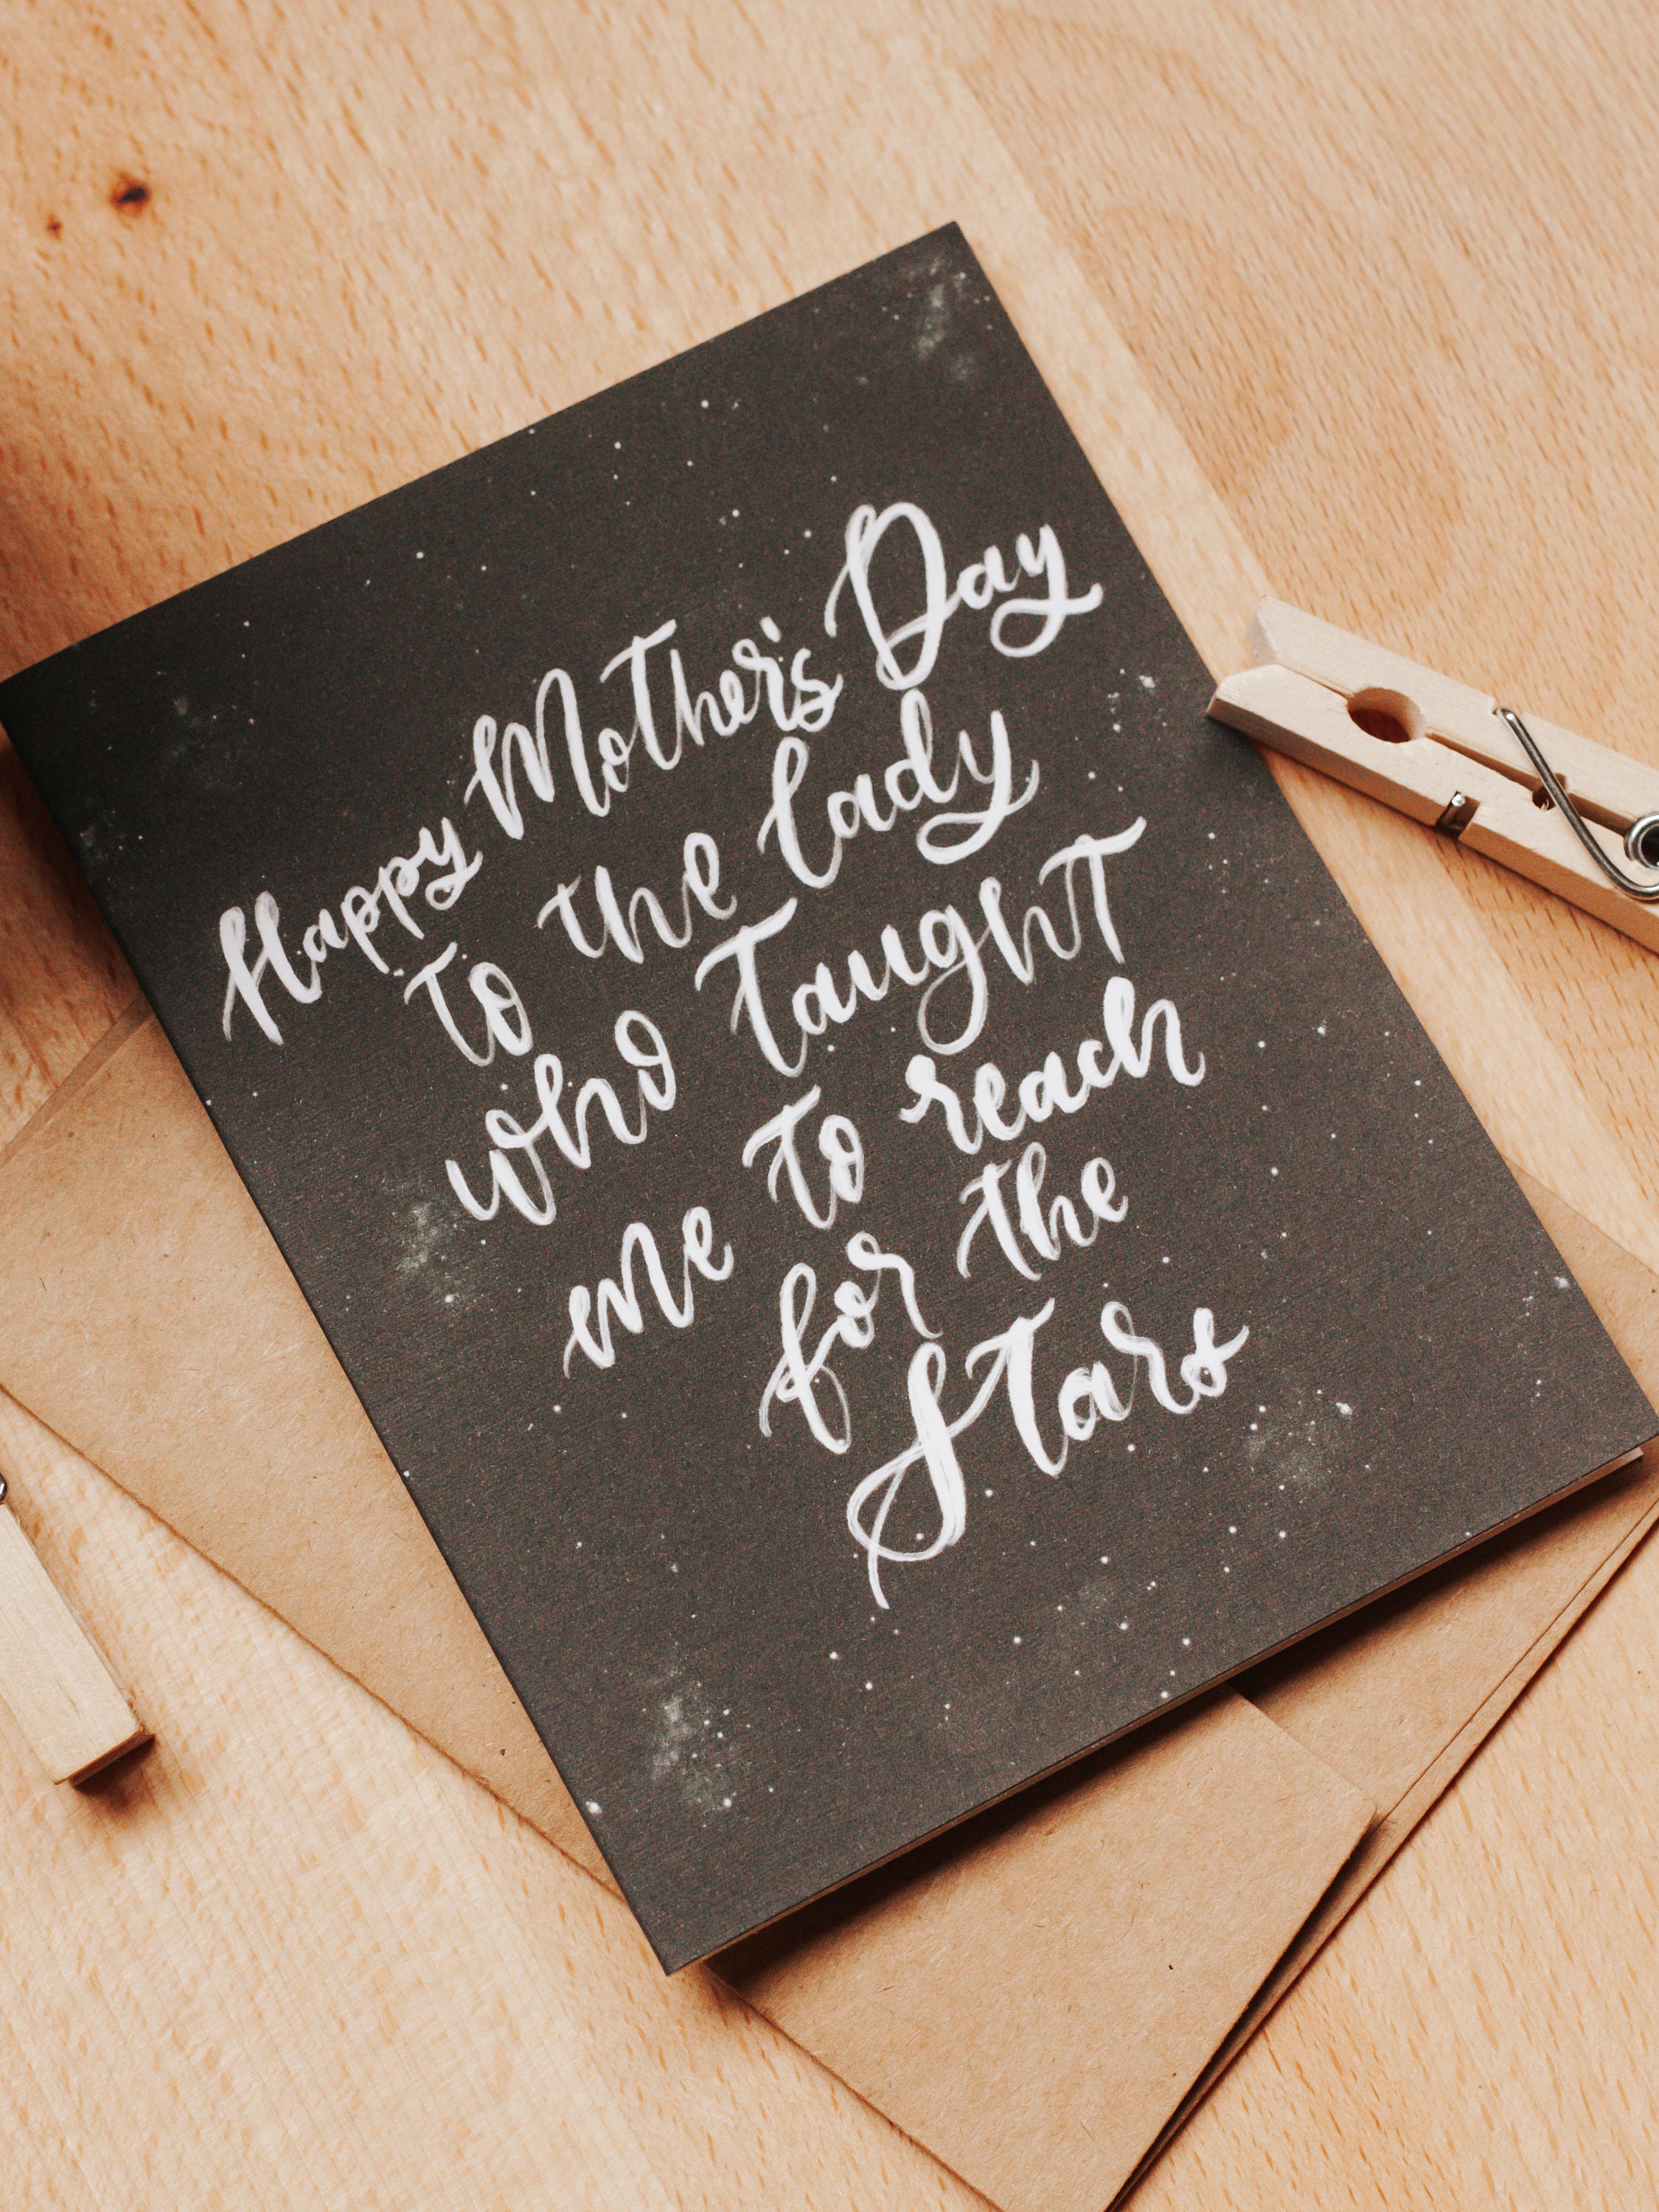 Happy Mother's Day
to the lady
who taught
me to reach
for the
Stars